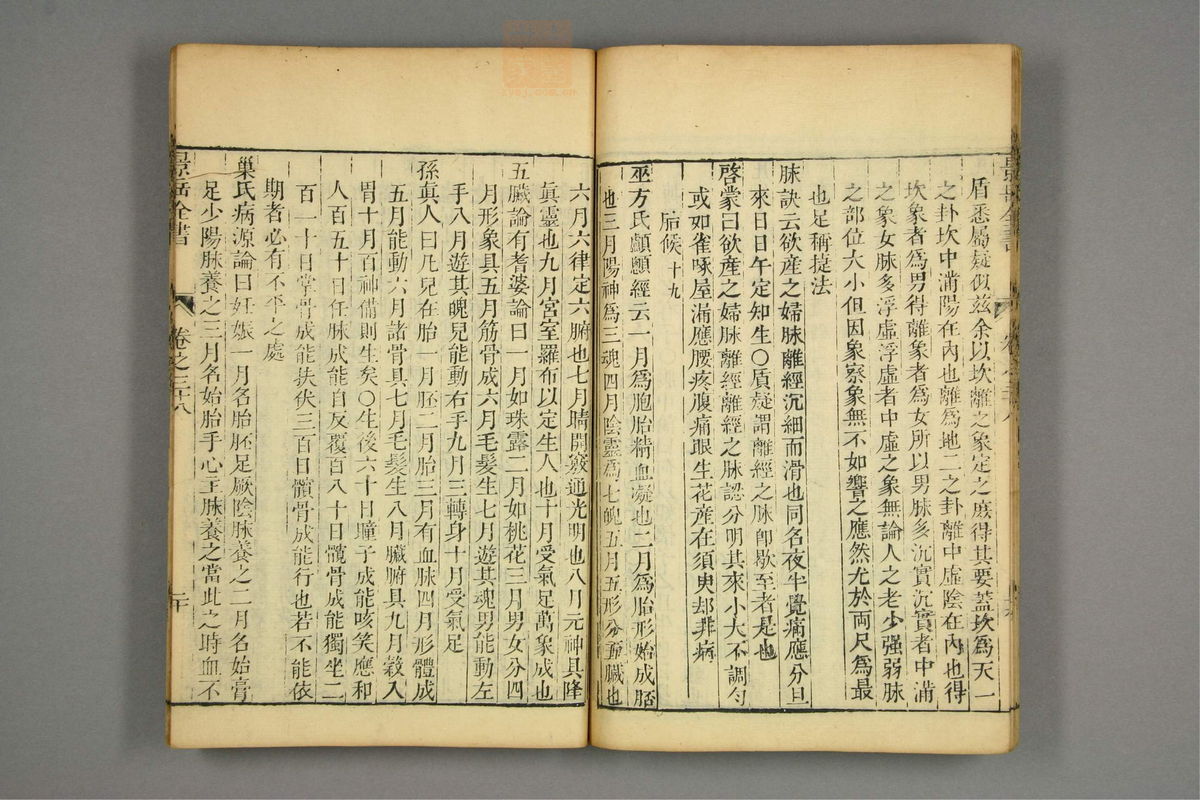 盾悉屬疑似茲余以坎離之象定之庶得其要蓋坎爲天一
之卦坎中滿陽在內也離爲地二之卦離中虛陰在內也得
坎象者爲男得離象者爲女所以男脉多沉實沉實者中滿
之象女脉多浮虛浮虛者中虛之象無論人之老少强弱脉
之部位大小但因象察象無不如響之應然尤於兩尺爲最
也足稱捷法
脉訣云欲產之婦脉離經沉細而滑也同名夜半覺痛應分旦
來日日午定知生〇質疑謂離經之脉卽歇至者是也
啓蒙曰欲產之婦脉離經離經之脉認分明其來小大不調勻
或如雀啄屋漏應腰疼腹痛眼生花產在須臾却非病
胎候十九
巫方氏顱顖經云一月爲胞胎精血凝也二月爲胎形始成胚
也三月陽神爲三魂四月陰靈爲七魄五月五形分五臟也
六月六律定六腑也七月睛開竅通光明也八月元神具降
眞靈也九月宮室羅布以定生人也十月受氣足萬象成也
五臟論有耆婆論曰一月如珠露二月如桃花三月男女分四
月形象具五月筋骨成六月毛髮生七月遊其魂男能動左
手八月遊其魄兒能動右手九月三轉身十月受氣足
孫眞人曰凡兒在胎一月胚二月胎三月有血脉四月形體成
五月能動六月諸骨具七月毛髮生八月臟腑具九月穀入
胃十月百神備則生矣〇生後六十日瞳子成能咳笑應和
人百五十日任脉成能自反覆百八十日髖骨成能獨坐二
百一十日掌骨成能扶伏三百日髕骨成能行也若不能依
期者必有不平之處
巢氏病源論曰妊娠一月名胎胚足厥陰脉養之二月名始膏
足少陽脉養之三月名始胎手心主脉養之當此之時血不
景岳全書
卷之三十八
二十